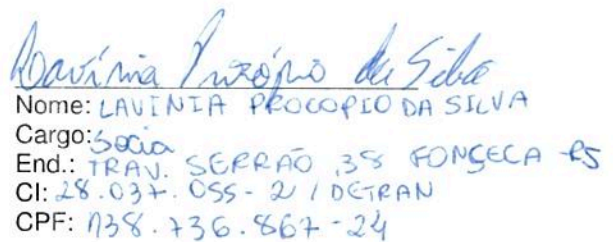 Lavínia Procópio da Silva
Nome: LAVINIA PROCOPIO DA SILVA
Cargo: Socia
End.: TRAV. SERRÃO, 38 FONSECA - RJ
CI: 28.037.055-2 / DETRAN
CPF: 138.736.867-24